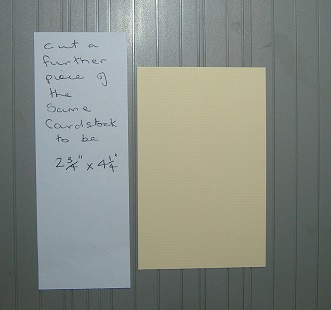 cut a
further
piece of
the
Same
Cardstock
to be
2 3/4" x 4 1/4"